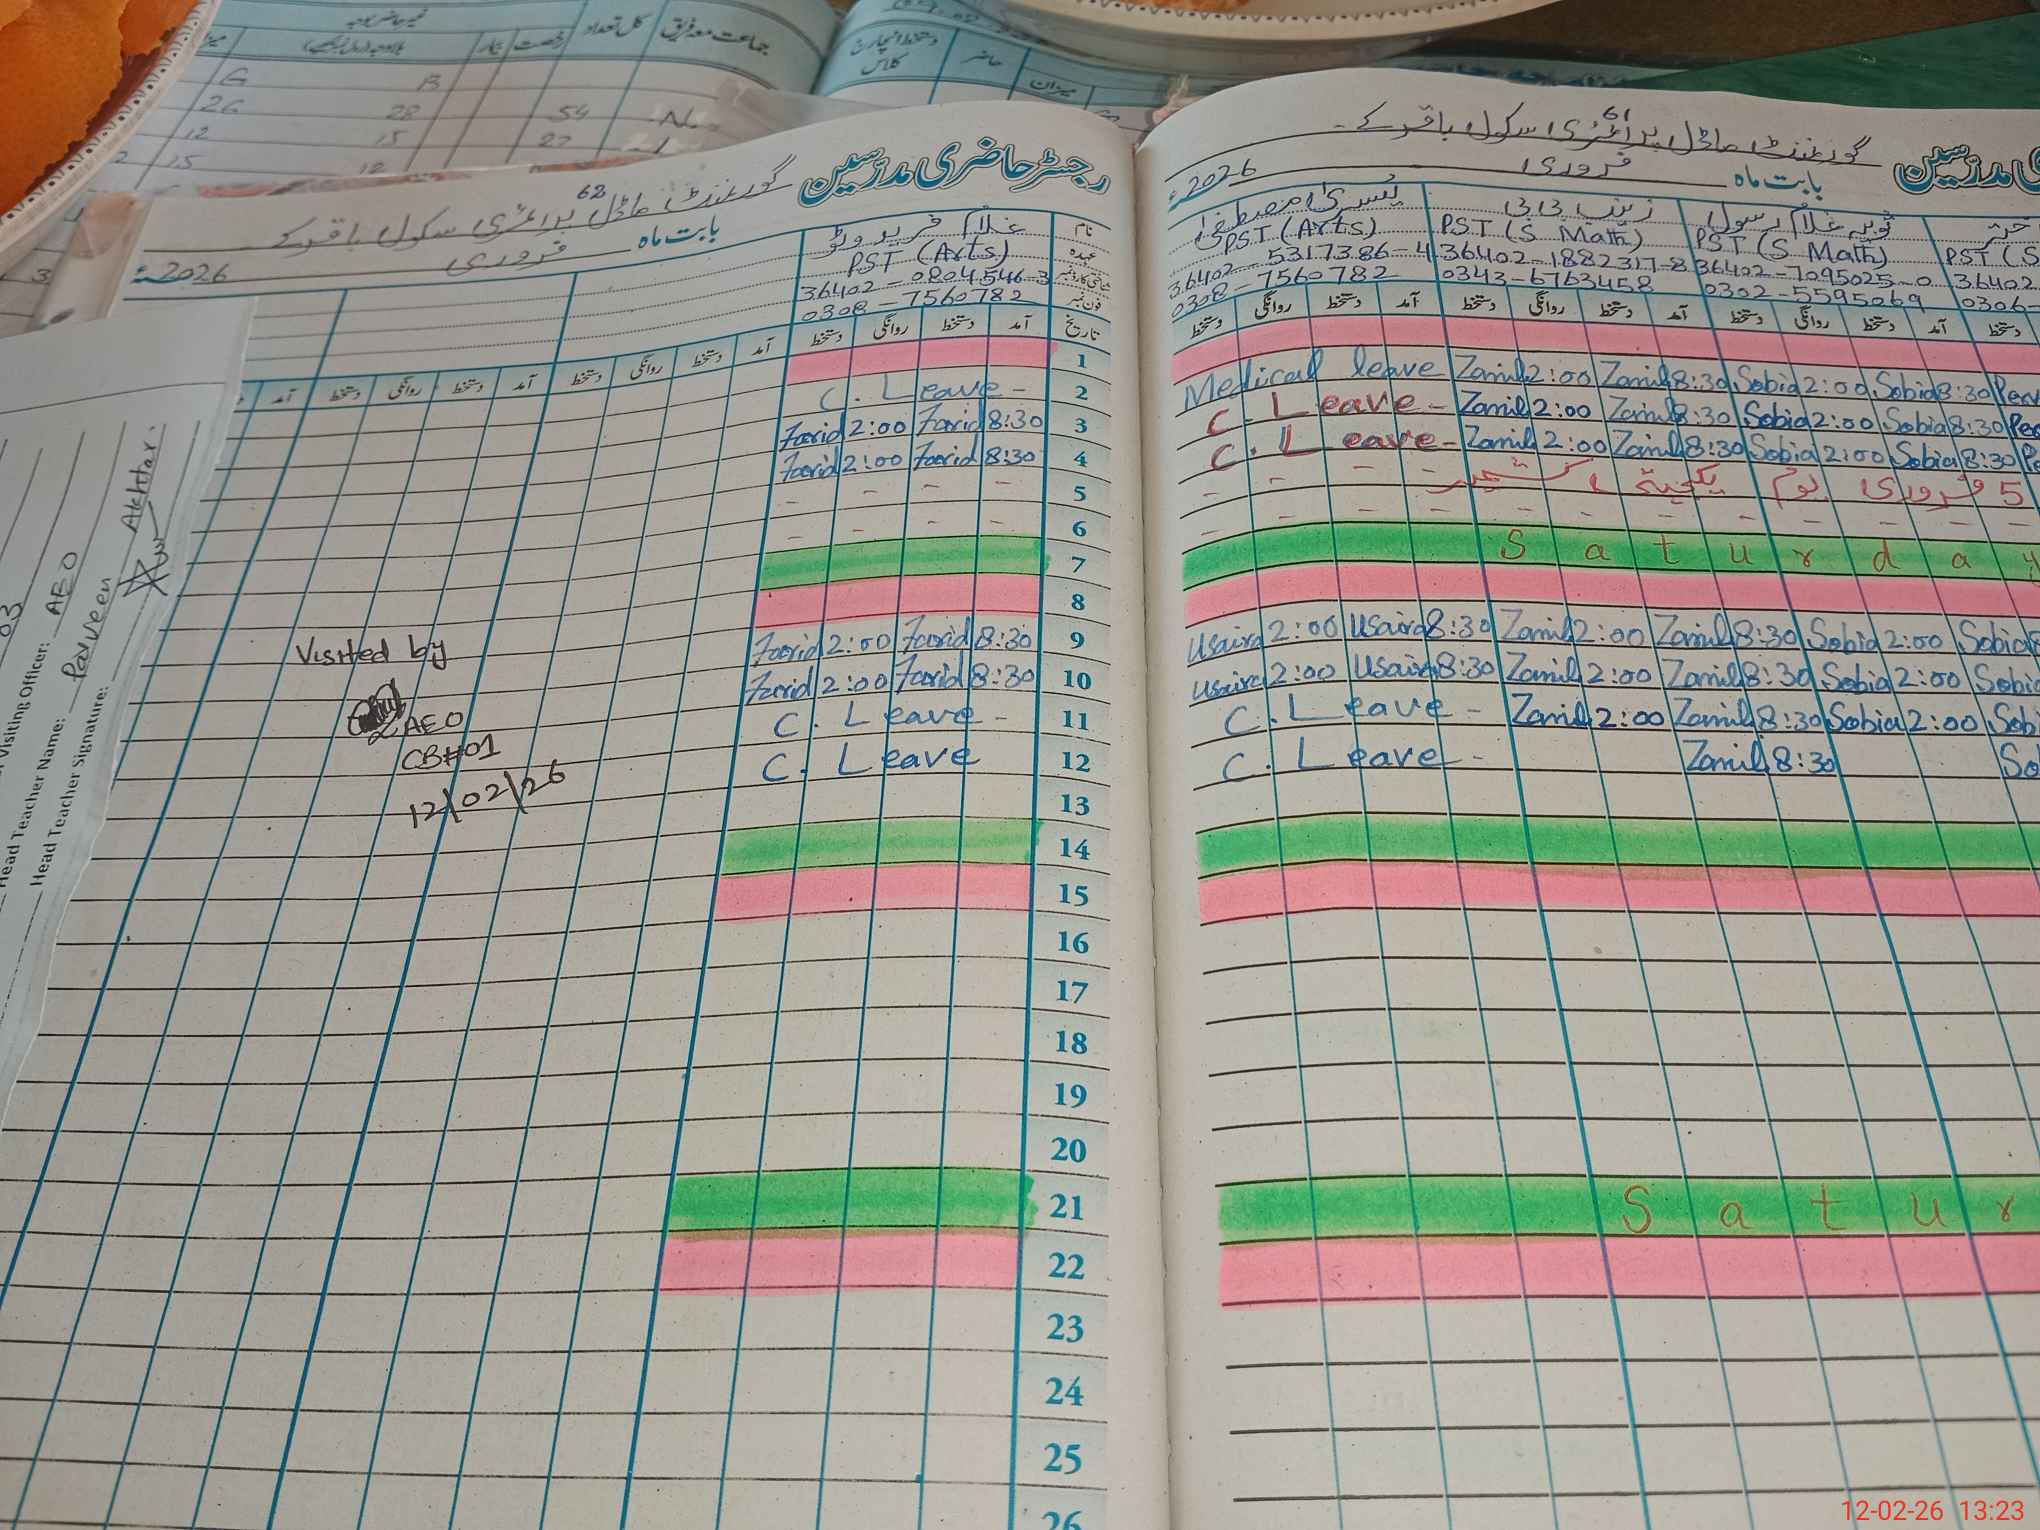 جماعت معہ فریق کل تعداد رخصت
دستخط انچارج کلاس حاضر میزان
G B
26 28 54
12 15 27
15
رجسٹر حاضری مدرسین
62
گورنمنٹ ماڈل پرائمری سکول باقر کے
بابت ماہ فروری 2026ء
نام غلام فرید وٹو
عہدہ PST (Arts)
36402-0804546-3
فون نمبر 0308-7560782
تاریخ آمد دستخط روانگی دستخط آمد دستخط روانگی دستخط آمد دستخط روانگی دستخط آمد
1
2 C. Leave -
3 Farid 2:00 Farid 8:30
4 Farid 2:00 Farid 8:30
5 - - - -
6 - - - -
7
8
9 Farid 2:00 Farid 8:30
10 Farid 2:00 Farid 8:30
11 C. Leave -
12 C. Leave
13
14
15
16
17
18
19
20
21
22
23
24
25
26
Visited by
AEO
CB#01
12/02/26
03
Visiting Officer: AEO
Head Teacher Name: Parveen Akhtar.
Head Teacher Signature:
61
گورنمنٹ ماڈل پرائمری سکول باقر کے
بابت ماہ فروری 2026ء
یسریٰ مصطفیٰ زینب بی بی ثوبیہ غلام رسول
PST (Arts) PST (S Math) PST (S Math) PST (S
36402-5317386-4 36402-1882317-8 36402-7095025-0 36402
0308-7560782 0343-6763458 0302-5595069 0306-
دستخط روانگی دستخط آمد دستخط روانگی دستخط آمد دستخط روانگی دستخط آمد دستخط
Medical leave Zamil 2:00 Zamil 8:30 Sobia 2:00 Sobia 8:30
C. Leave - Zamil 2:00 Zamil 8:30 Sobia 2:00 Sobia 8:30
C. Leave - Zamil 2:00 Zamil 8:30 Sobia 2:00 Sobia 8:30
5 فروری یوم یکجہتی کشمیر
Saturday
Usaira 2:00 Usaira 8:30 Zamil 2:00 Zamil 8:30 Sobia 2:00 Sobia
Usaira 2:00 Usaira 8:30 Zamil 2:00 Zamil 8:30 Sobia 2:00 Sobia
C. Leave - Zamil 2:00 Zamil 8:30 Sobia 2:00 Sob
C. Leave - Zamil 8:30 So
Satur
12-02-26 13:23